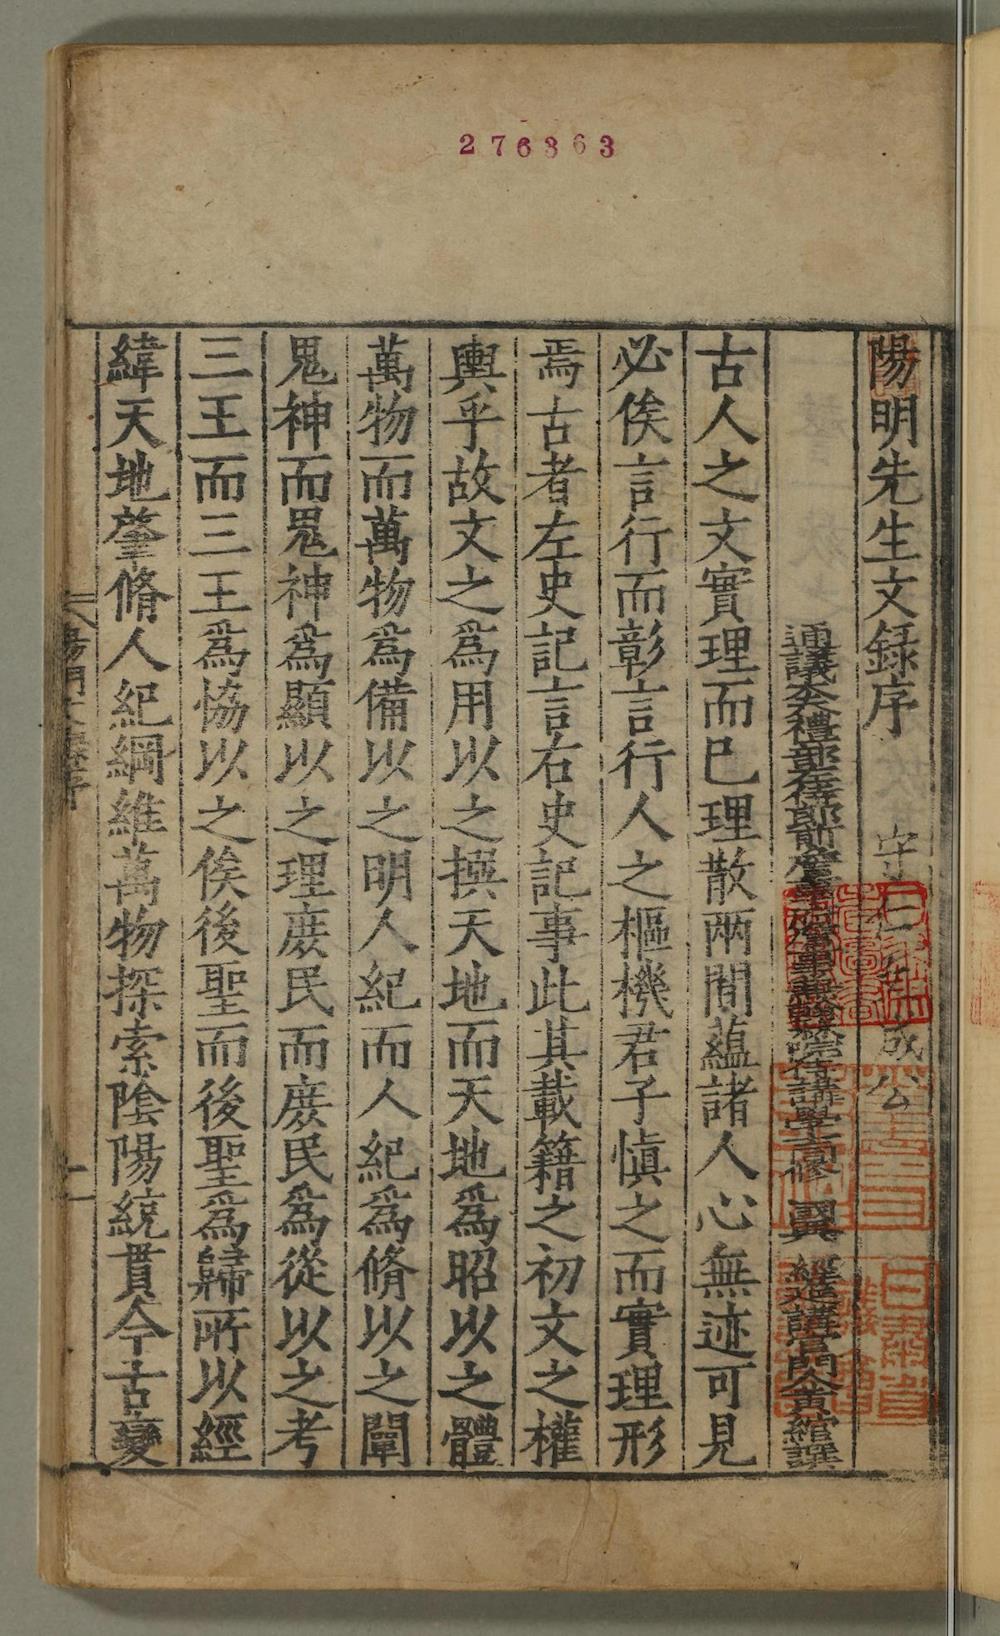 276363
陽明先生文録序
通議大夫禮部左侍郎前詹事府詹事兼翰林院侍講學士同修 國典 經筵講官門人黃綰譔
古人之文實理而已理散兩間蘊諸人心無迹可見
必俟言行而彰言行人之樞機君子慎之而實理形
焉古者左史記言右史記事此其載籍之初文之權
輿乎故文之為用以之撰天地而天地為昭以之體
萬物而萬物為備以之明人紀而人紀為脩以之闡
鬼神而鬼神為顯以之理庶民而庶民為從以之考
三王而三王為恊以之俟後聖而後聖為歸所以經
緯天地肇脩人紀綱維萬物探索陰陽統貫今古變